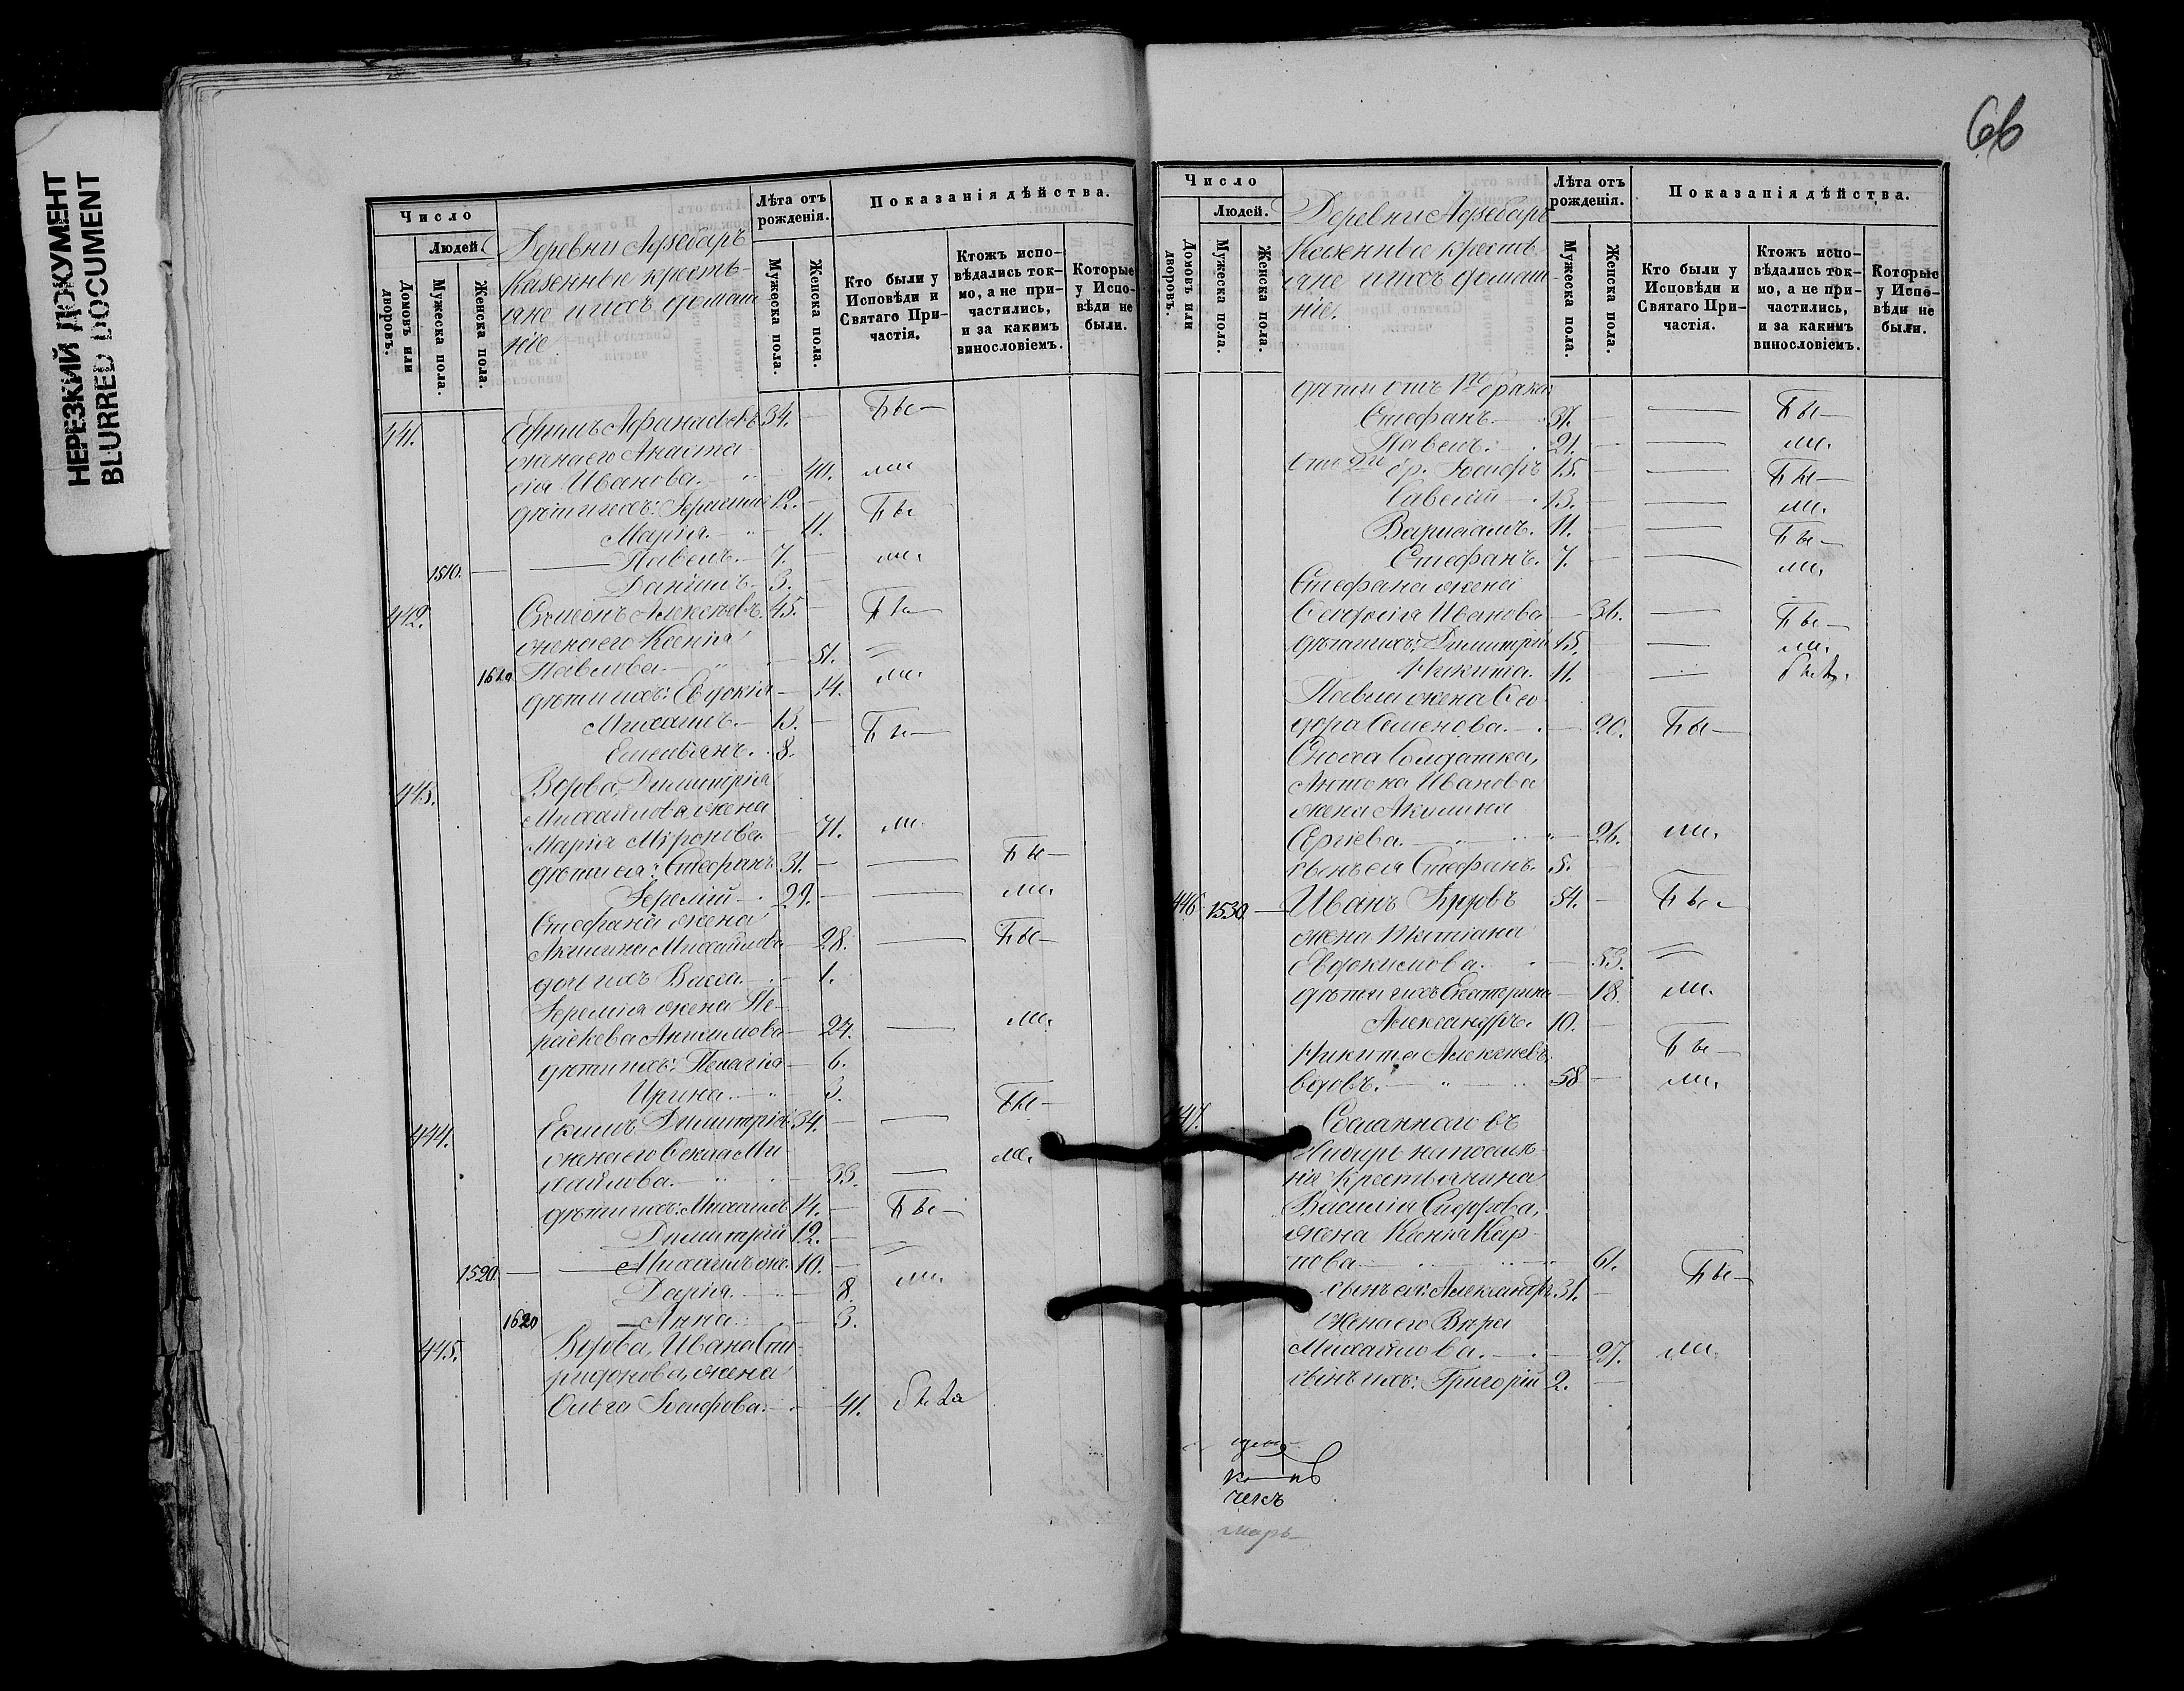 НЕРЕЗКИЙ ДОКУМЕНТ
BLURRED DOCUMENT
66
Число
Людей.
Домовъ или дворовъ.
Мужеска пола.
Женска пола.
Деревни
Казенные крестьяне
и ихъ домаш-
ніе.
Лѣта отъ рожденія.
Мужеска пола.
Женска пола.
Показанія дѣйства.
Кто были у Исповѣди и Святаго При-частія.
Ктожъ испо-вѣдались ток-мо, а не при-частились, и за какимъ винословіемъ.
Которые у Испо-вѣди не были.
441. Ефимъ Афанасьевъ 34. — Бы—
жена его Анаста-
сія Иванова. — 40. ли
дѣти ихъ: 12. — Бы
Марія. — 11.
1510. — Павелъ. — 7. — ли.
Даніилъ. 3. —
442. Симеонъ Алексѣевъ. 45. — Бы—
жена его Ксенія
1610 Павлова. — 51.
дѣти ихъ: Евдокія — 14. ли.
Михаилъ. — 13. — Бы—
Емельянъ. 8.
443. Вдова, Димитрія
Михайлова, жена
Марія Миронова — 71. ли.
дѣти ея: Стефанъ. 31. — — Бы—
Іеремій. 29. — — ли.
Стефана жена
Акилина Михайлова — 28. — Бы—
дочь ихъ Васса. — 1.
Іеремія жена Па-
раскева — 24. — ли.
дѣти ихъ: Пелагія — 6.
Ирина. — 3.
444. Димитріевъ 34. — — Бы—
жена его Ми-
хайлова. — 33. — ли.
дѣти ихъ: Михаилъ 14. — Бы—
Димитрій 12. —
1520. — Михаилъ же. 10. —
Дарія. — 8. ли.
1620 — Анна. — 3.
445. Вдова, Ивана Спи-
ридонова, жена
Ольга Іосифова. — 41. была
Число
Людей.
Домовъ или дворовъ.
Мужеска пола.
Женска пола.
Деревни
Казенные кресть-
яне и ихъ домаш-
ніе.
Лѣта отъ рожденія.
Мужеска пола.
Женска пола.
Показанія дѣйства.
Кто были у Исповѣди и Святаго При-частія.
Ктожъ испо-вѣдались ток-мо, а не при-частились, и за какимъ винословіемъ.
Которые у Испо-вѣди не были.
дѣти отъ 1го брака:
Стефанъ. — 37. — — Бы—
Павелъ. 21. — — ли.
отъ 2го бр. Іосифъ 15. — — Бы—
Савелій — 13. — — ли.
Варлаамъ. 11. — — Бы—
Стефанъ. 7. — — ли.
Стефана жена
Иванова — 36. — Бы—
дѣти ихъ: Димитрій 15. — — ли.
Никита. 11. — — былъ.
Павла жена Ѳео-
дора Семенова. — 20. Бы—
Сноха Солдатка,
Антона Иванова
жена Акилина
Сергіева. — 26. ли.
сынъ ея Стефанъ. 8. —
446 1530. — Иванъ 54. — Бы—
жена
Евдокимова. — 53.
дѣти ихъ Екатерина — 18. ли.
Александръ. 10. —
Никита Алексѣевъ Бы—
вдовъ. — 58 — ли.
447. Сосланнаго въ
Сибирь на поселе-
ніе Крестьянина
Василія Сидорова,
жена Ксенія Кар-
пова — 61. Бы—
сынъ ея: Александръ. 31. —
жена его Вѣра
Михайлова. — 27. ли.
сынъ ихъ: Григорій 2. —